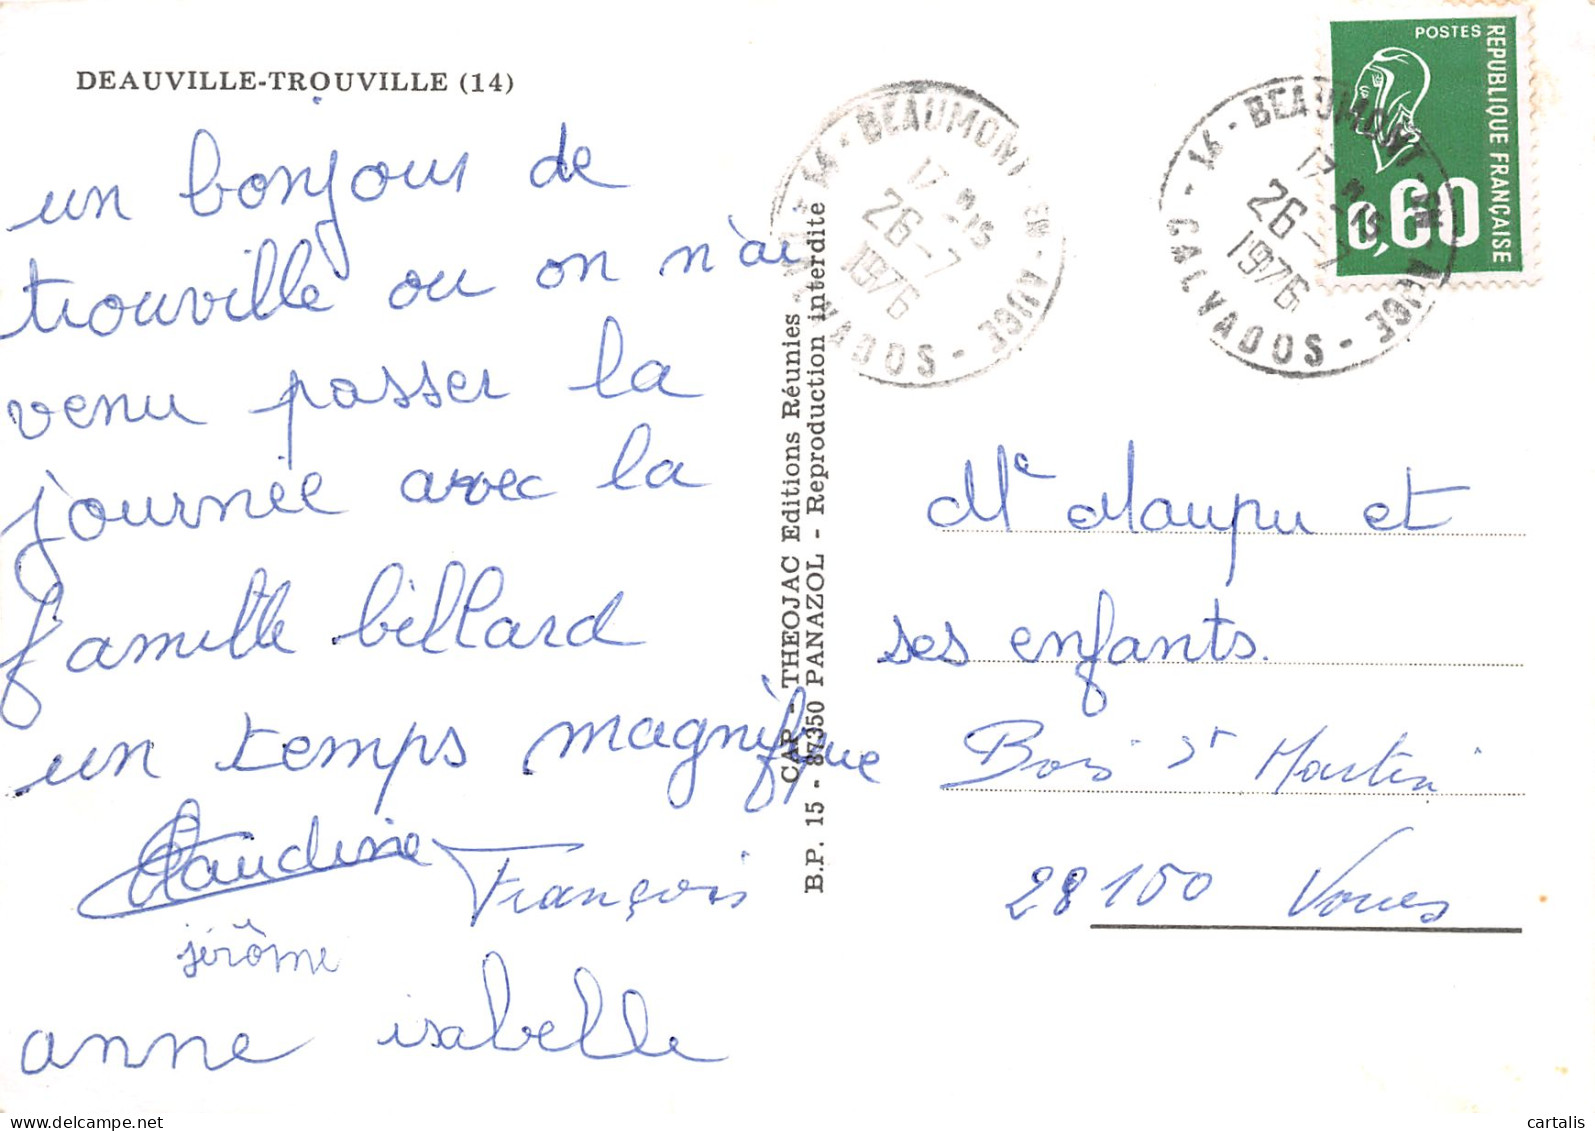 DEAUVILLE-TROUVILLE (14)
un bonjour de
trouville ou on n'ai
venu passer la
journée avec la
famille billard
un temps magnifique
Claudine
François
jérôme
anne isabelle
CAP - THEOJAC Editions Réunies -
B.P. 15 - 87350 PANAZOL - Reproduction interdite
14 - BEAUMONT - EN - AUGE - CALVADOS -
17 H 15
26-7
1976
14 - BEAUMONT - EN - AUGE - CALVADOS -
17 H 15
26-7
1976
POSTES
REPUBLIQUE FRANÇAISE
0,60
Me Maupu et
ses enfants.
Bois St Martin
28150 Voves
cartalis